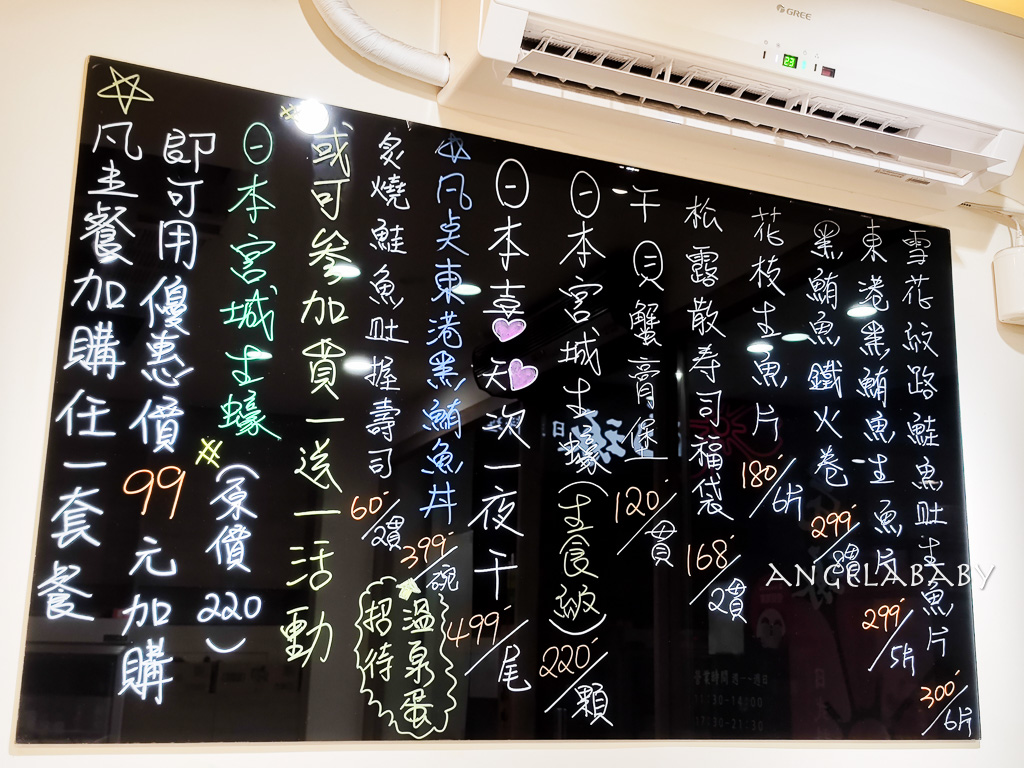 凡主餐加購任一套餐
即可用優惠價99元加購
日本宮城生蠔(原價220)
或可參加買一送一活動
炙燒鮭魚肚握壽司 60/2貫
凡点東港黑鮪魚丼 399/碗
溫泉蛋
招待
日本喜知次一夜干 499/尾
日本宮城生蠔(生食級) 220/顆
干貝蟹膏堡 120/貫
松露散寿司福袋 168/2貫
花枝生魚片 180/6片
黑鮪魚鐵火卷 299/
東港黑鮪魚生魚片 299/5片
雪花紋路鮭魚肚生魚片 300/6片
GREE
23
ANGELABABY